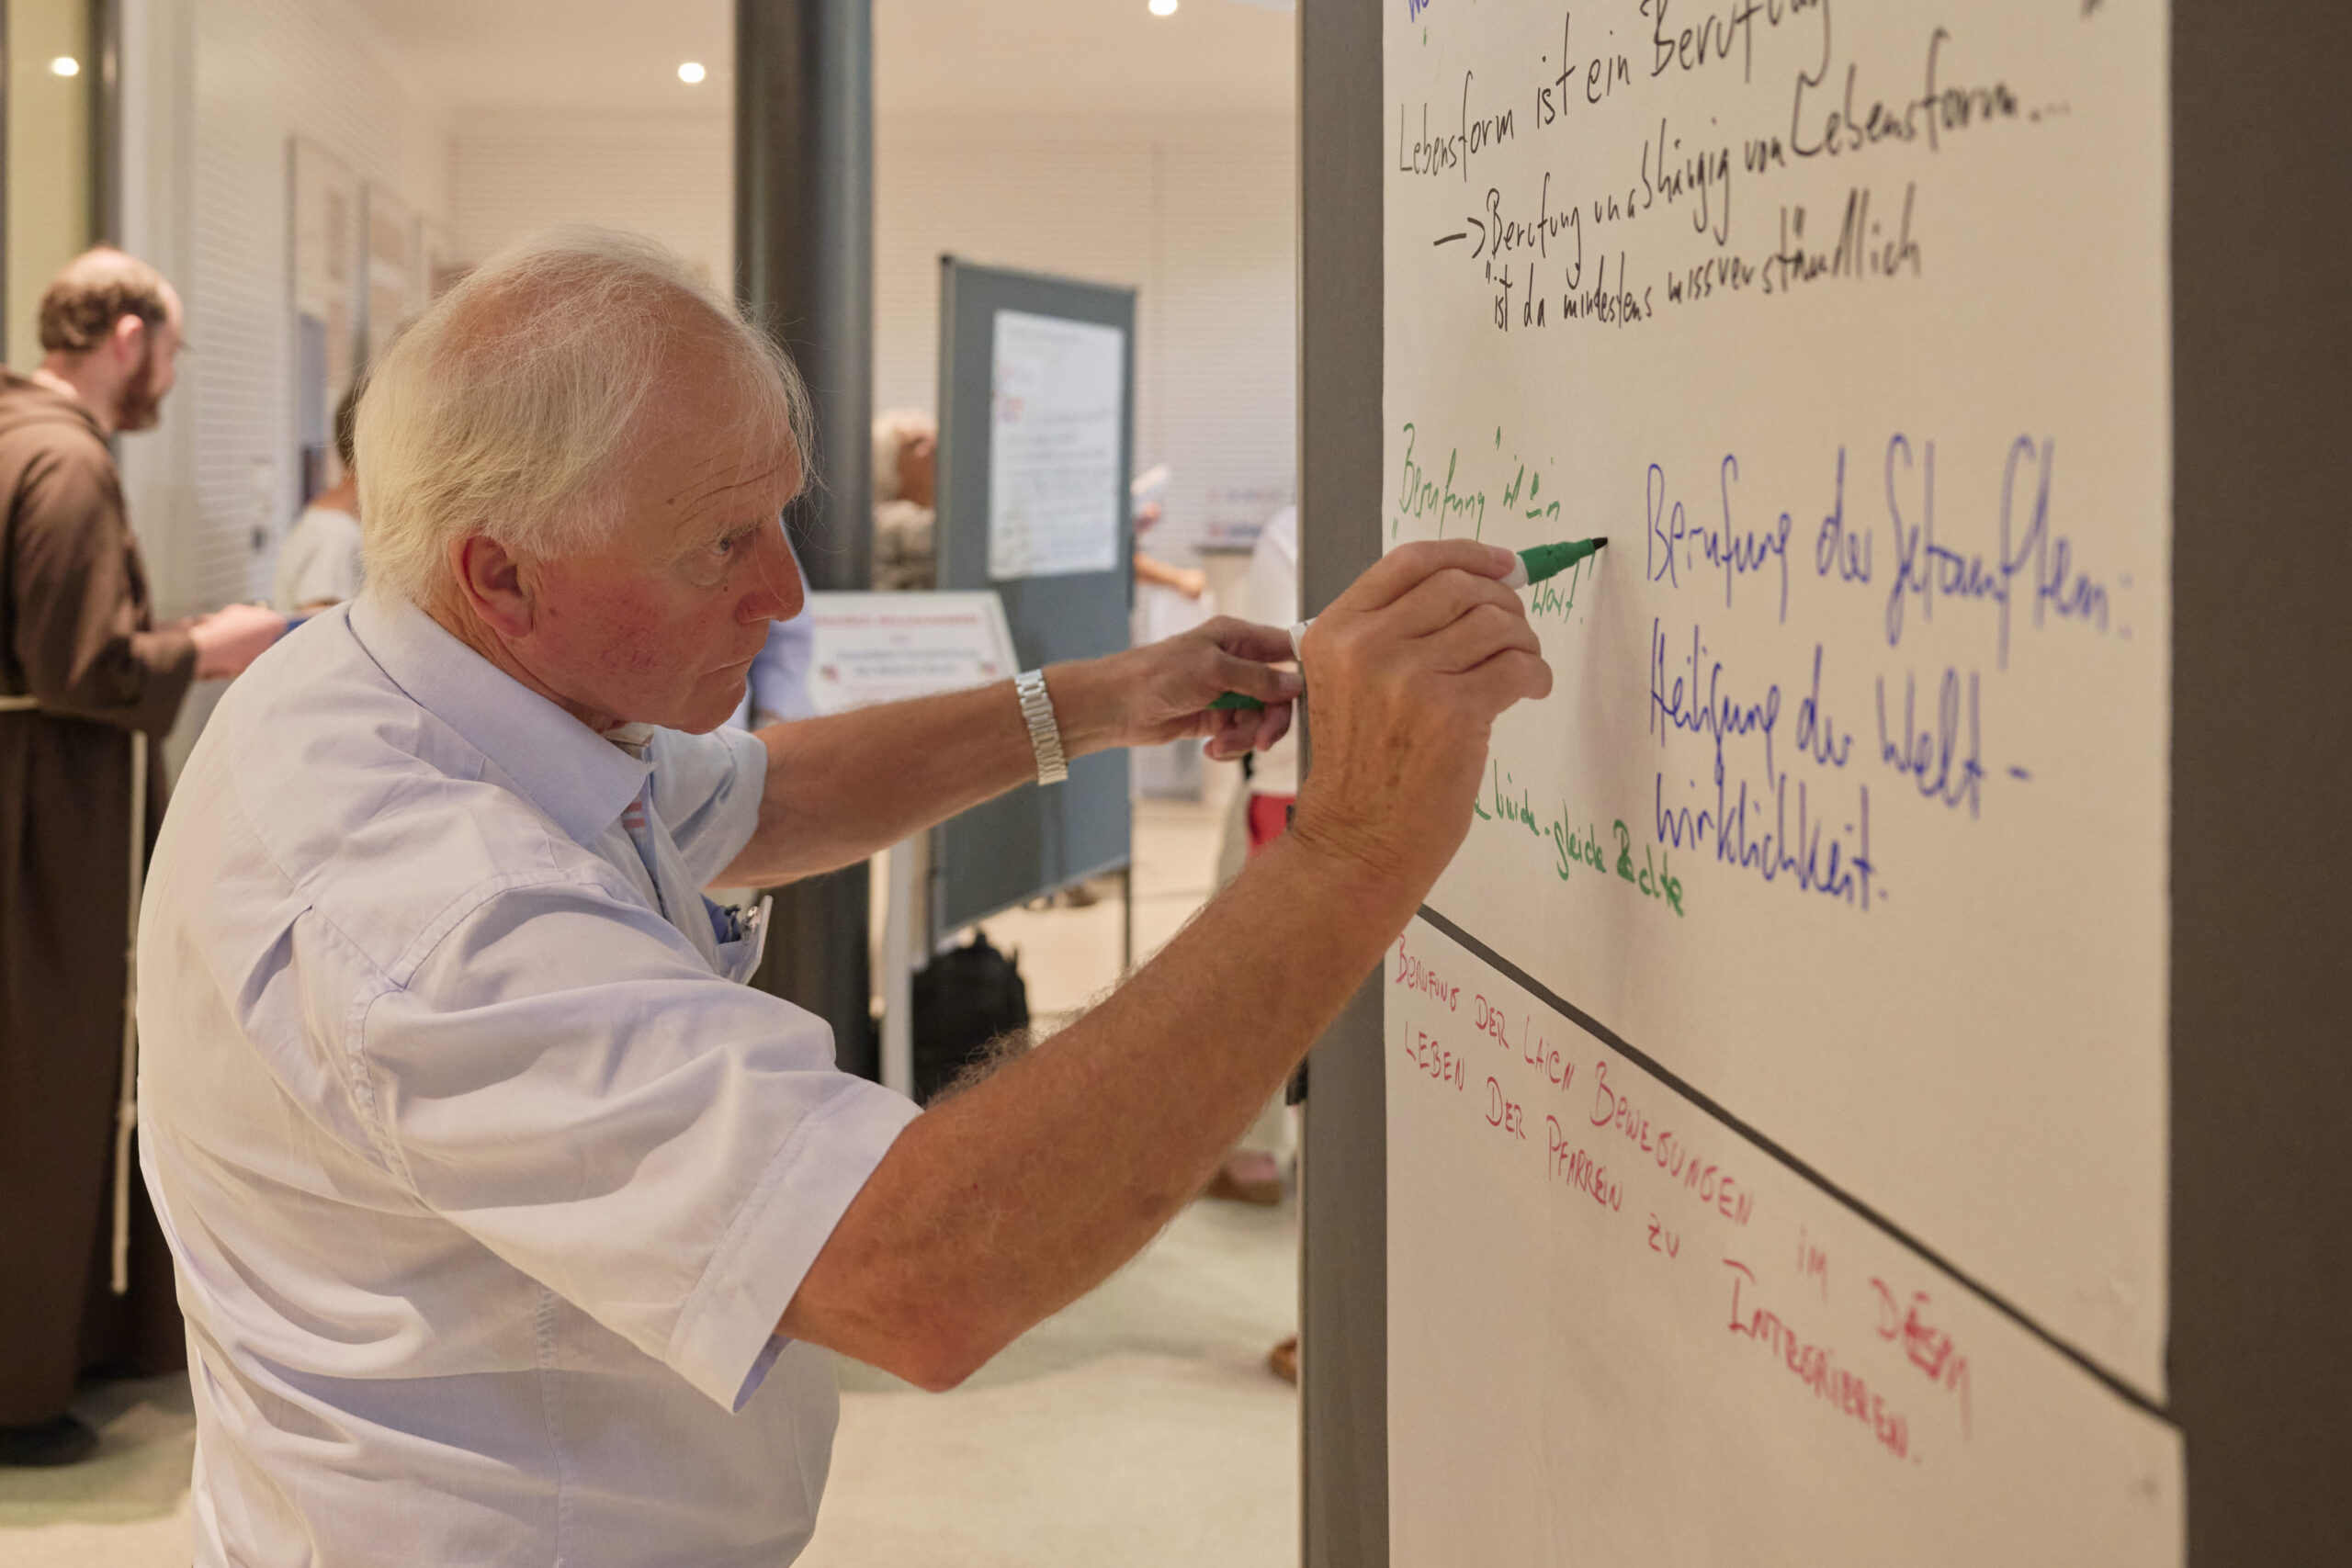 Lebensform ist ein Berufung
→ Berufung unabhängig von Lebensform....
"ist da mindestens missverständlich
"Berufung" ist ein
Wort!
Berufung der Getauften:
Heiligung der Welt-
wirklichkeit.
beide - gleiche Rechte
BERUFUNG DER LAIEN BEWEGUNGEN IM DASEIN
LEBEN DER PFARREIN ZU INTEGRIEREN.